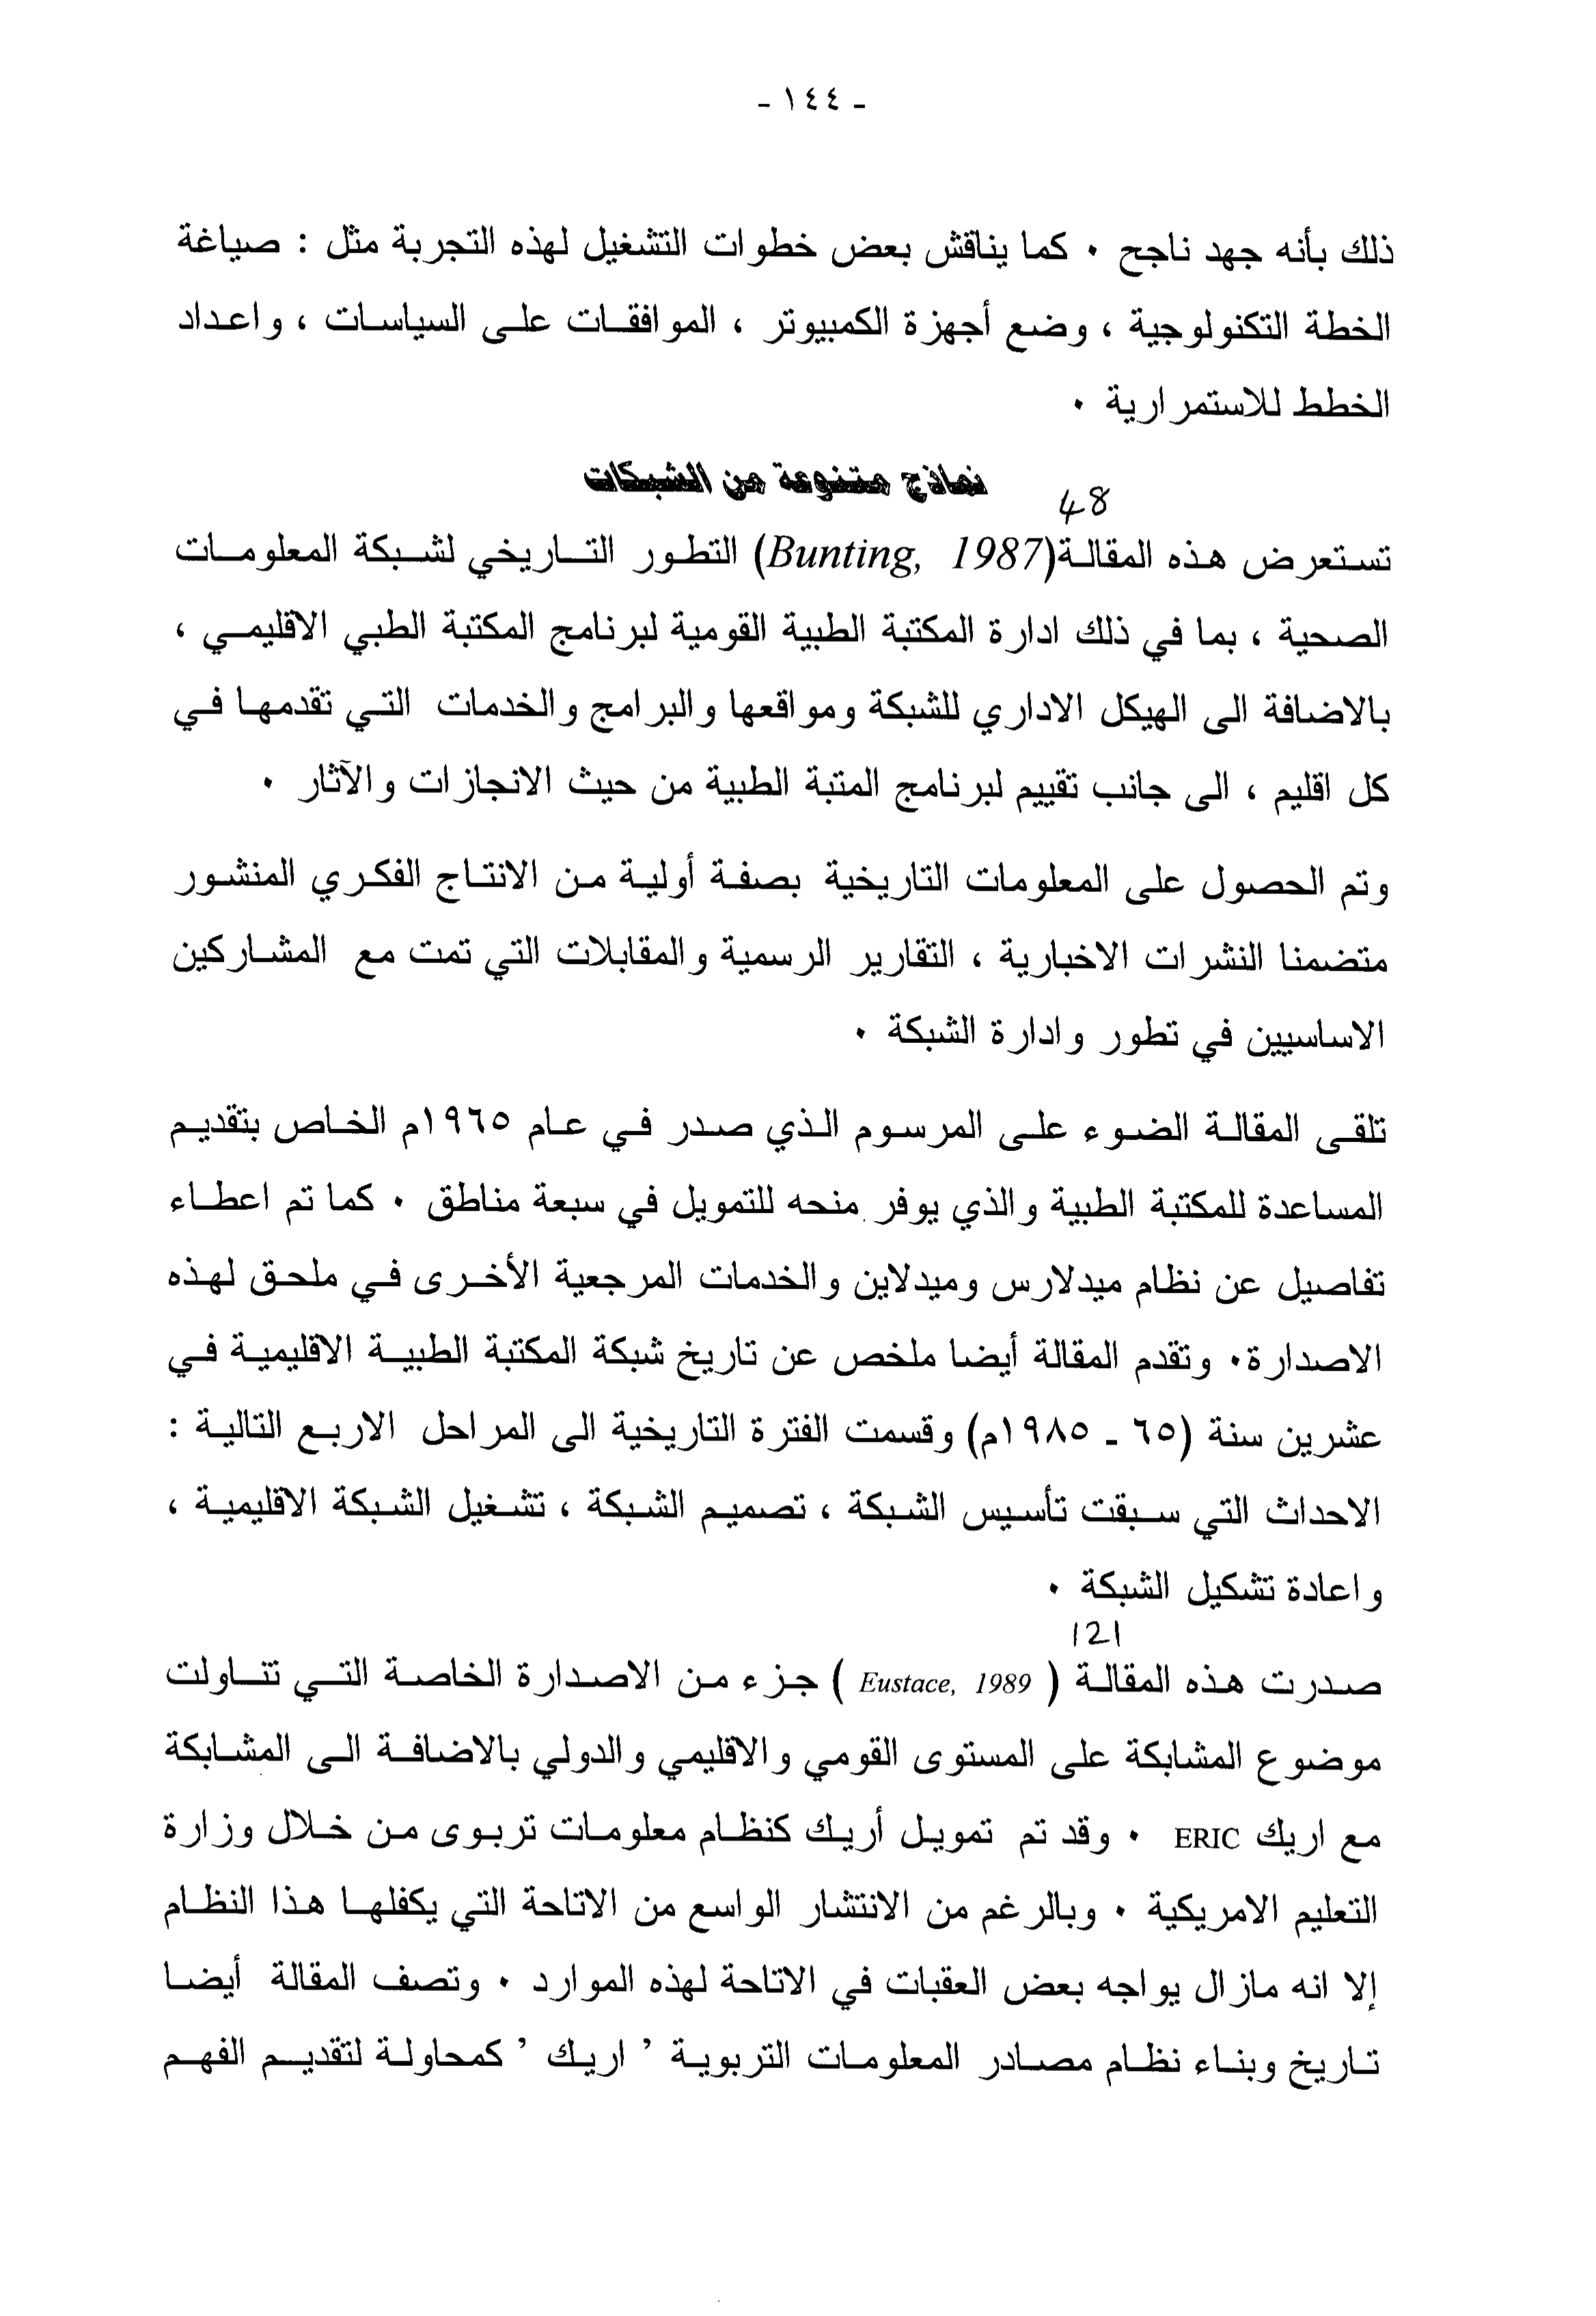 - ١٤٤ -
ذلك بأنه جهد ناجح ٠ كما يناقش بعض خطوات التشغيل لهذه التجربة مثل : صياغة
الخطة التكنولوجية ، وضع أجهزة الكمبيوتر ، الموافقات على السياسات ، واعداد
الخطط للاستمرارية ٠
نماذج متنوعة من الشبكات
48
تستعرض هذه المقالة(Bunting, 1987) التطور التاريخي لشبكة المعلومات
الصحية ، بما في ذلك ادارة المكتبة الطبية القومية لبرنامج المكتبة الطبي الاقليمي ،
بالاضافة الى الهيكل الاداري للشبكة ومواقعها والبرامج والخدمات التي تقدمها في
كل اقليم ، الى جانب تقييم لبرنامج المتبة الطبية من حيث الانجازات والآثار ٠
وتم الحصول على المعلومات التاريخية بصفة أولية من الانتاج الفكري المنشور
متضمنا النشرات الاخبارية ، التقارير الرسمية والمقابلات التي تمت مع المشاركين
الاساسيين في تطور وادارة الشبكة ٠
تلقى المقالة الضوء على المرسوم الذي صدر في عام ١٩٦٥م الخاص بتقديم
المساعدة للمكتبة الطبية والذي يوفر منحه للتمويل في سبعة مناطق ٠ كما تم اعطاء
تفاصيل عن نظام ميدلارس وميدلاين والخدمات المرجعية الأخرى في ملحق لهذه
الاصدارة٠ وتقدم المقالة أيضا ملخص عن تاريخ شبكة المكتبة الطبية الاقليمية في
عشرين سنة (٦٥ - ١٩٨٥م) وقسمت الفترة التاريخية الى المراحل الاربع التالية :
الاحداث التي سبقت تأسيس الشبكة ، تصميم الشبكة ، تشغيل الشبكة الاقليمية ،
واعادة تشكيل الشبكة ٠
121
صدرت هذه المقالة ( Eustace, 1989 ) جزء من الاصدارة الخاصة التي تتناولت
موضوع المشابكة على المستوى القومي والاقليمي والدولي بالاضافة الى المشابكة
مع اريك ERIC ٠ وقد تم تمويل أريك كنظام معلومات تربوى من خلال وزارة
التعليم الامريكية ٠ وبالرغم من الانتشار الواسع من الاتاحة التي يكفلها هذا النظام
إلا انه مازال يواجه بعض العقبات في الاتاحة لهذه الموارد ٠ وتصف المقالة أيضا
تاريخ وبناء نظام مصادر المعلومات التربوية ’ اريك ’ كمحاولة لتقديم الفهم